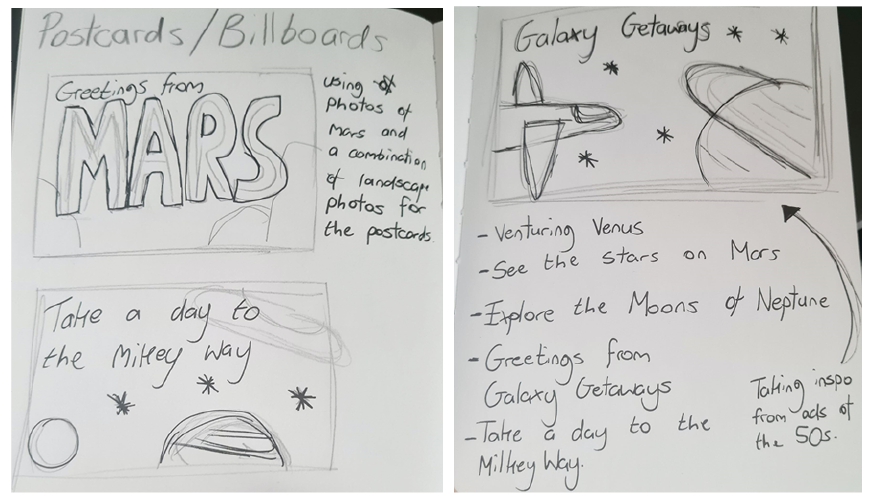 Postcards/Billboards
Greetings from
MARS
using of
photos of
Mars and
a combination
of landscape
photos for
the postcards.
Take a day to
the Milkey Way
Galaxy Getaways
- Venturing Venus
- See the stars on Mars
- Explore the Moons of Neptune
- Greetings from
Galaxy Getaways
- Take a day to the
Milkey Way.
Taking inspo
from ads of
the 50s.